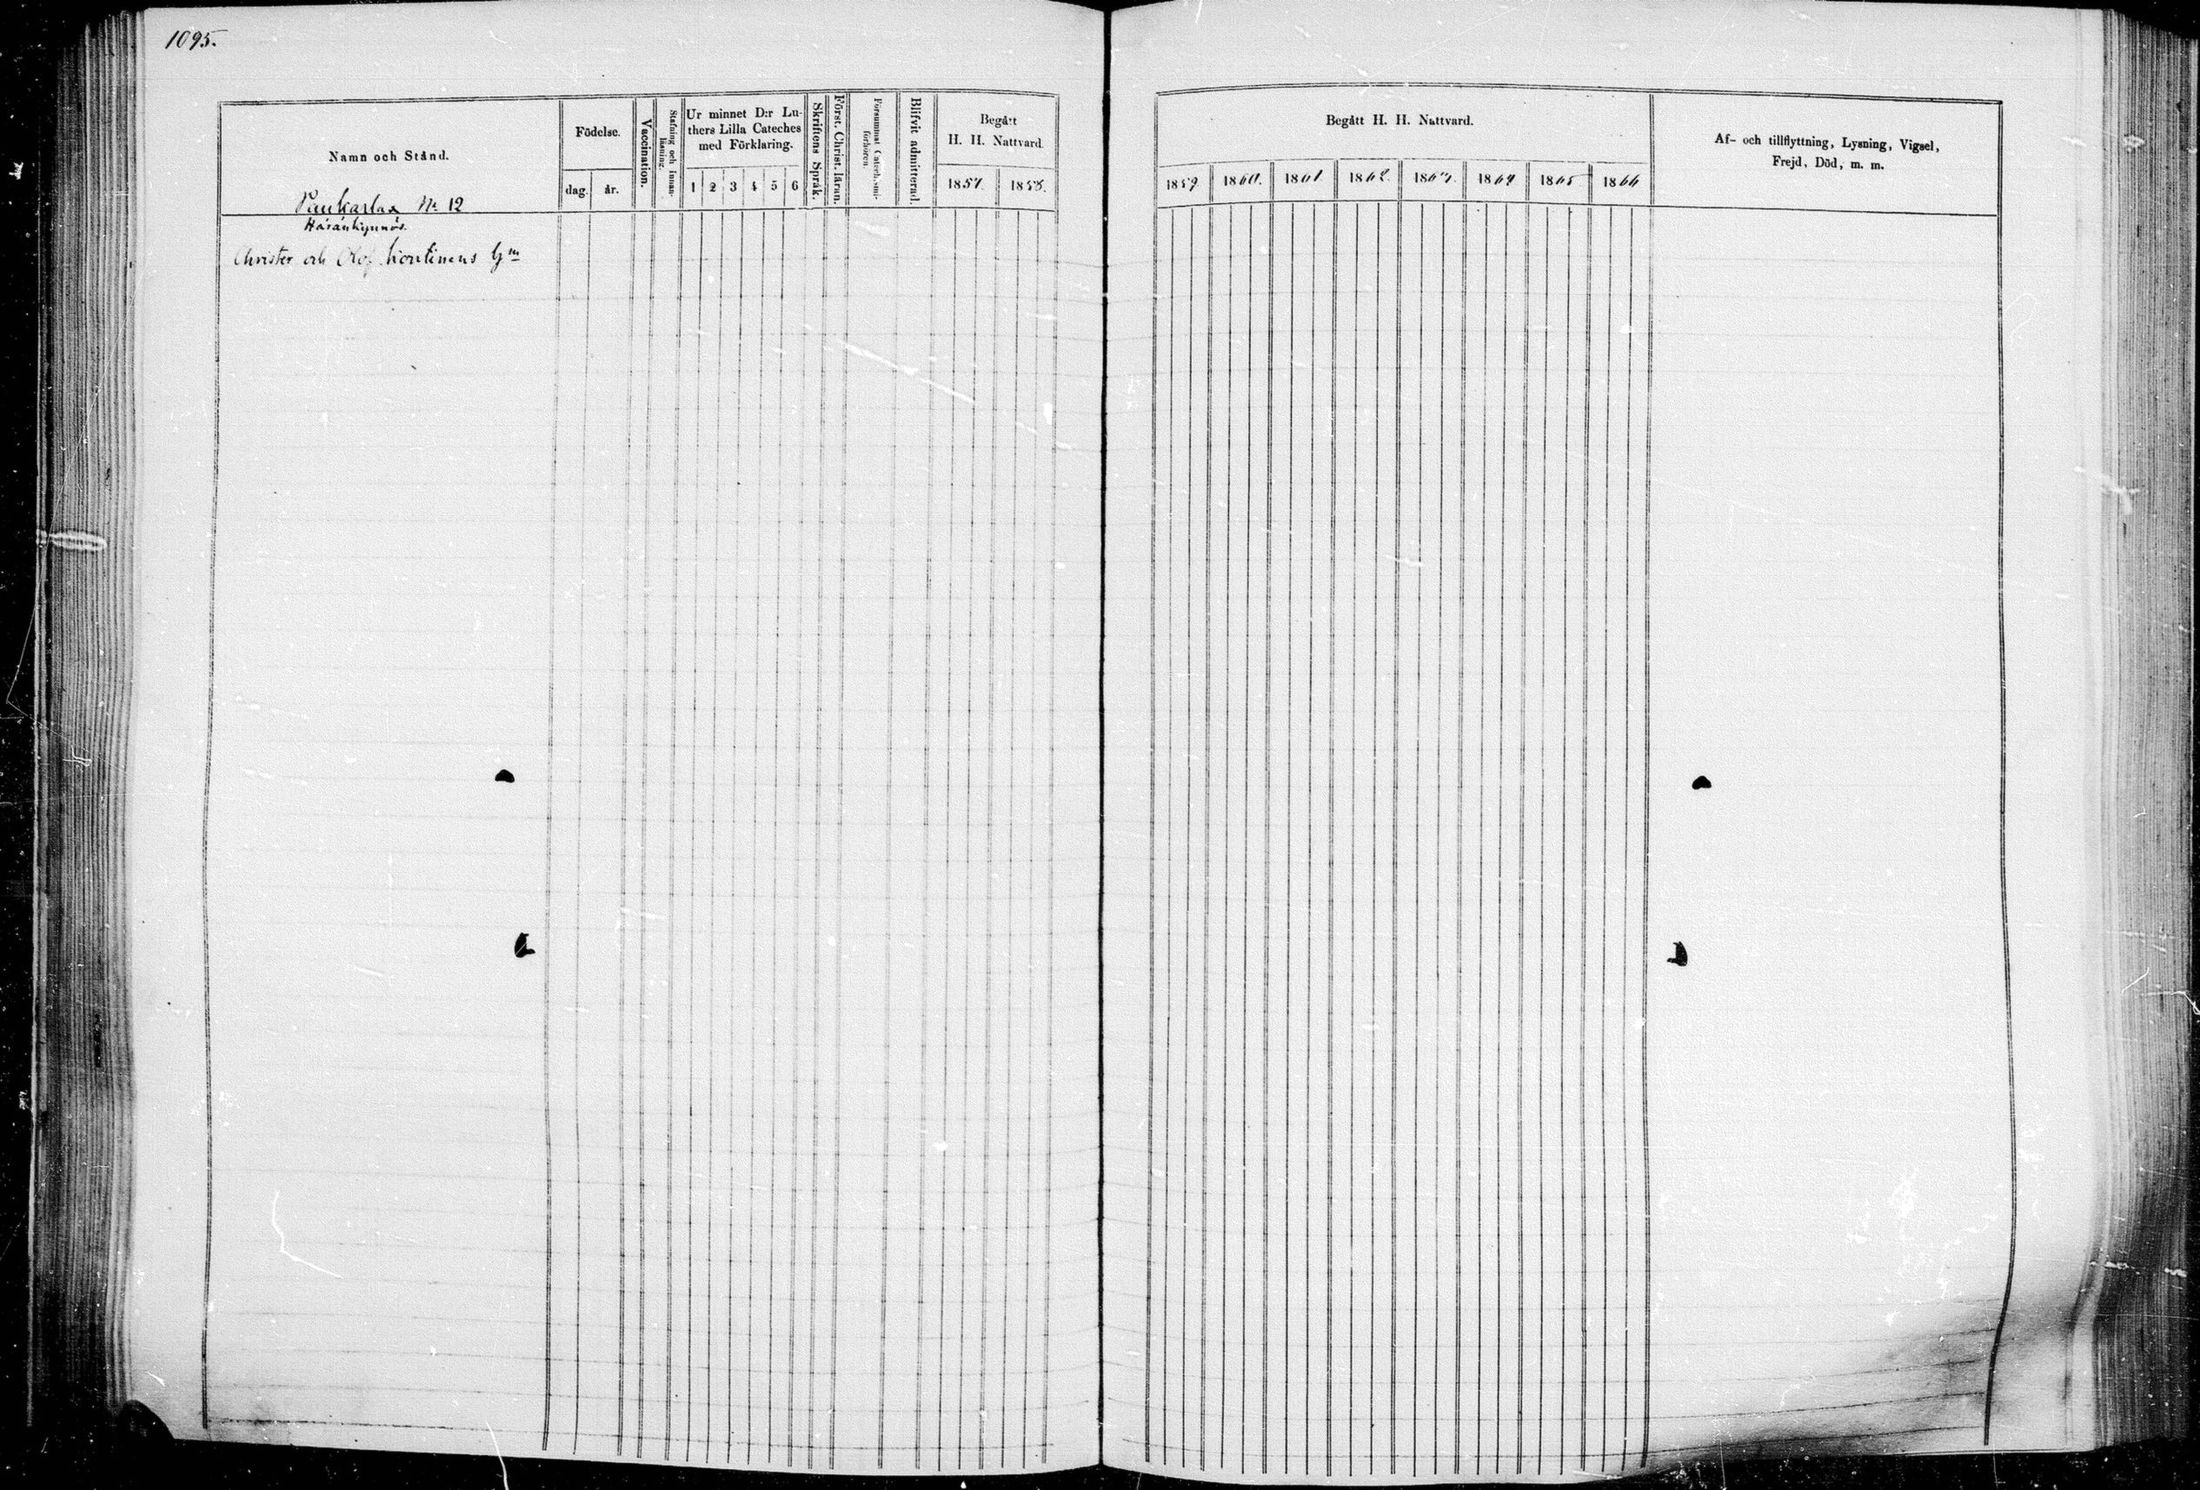 1095.
Namn och Stånd.
Födelse.
dag. år.
Vaccination.
Stafning och Innan-
läsning.
Ur minnet D:r Lu-
thers Lilla Cateches
med Förklaring.
1 2 3 4 5 6
Skriftens Språk.
Först. Christ. läran.
Försummat Catechismi-
förhören.
Blifvit admitterad.
Begått
H. H. Nattvard.
1857. 1858.
Paukarlax No 12
Christer och Olof
Begått H. H. Nattvard.
1859 1860. 1861 1862. 1863. 1864 1865 1866
Af- och tillflyttning, Lysning, Vigsel,
Frejd, Död, m. m.